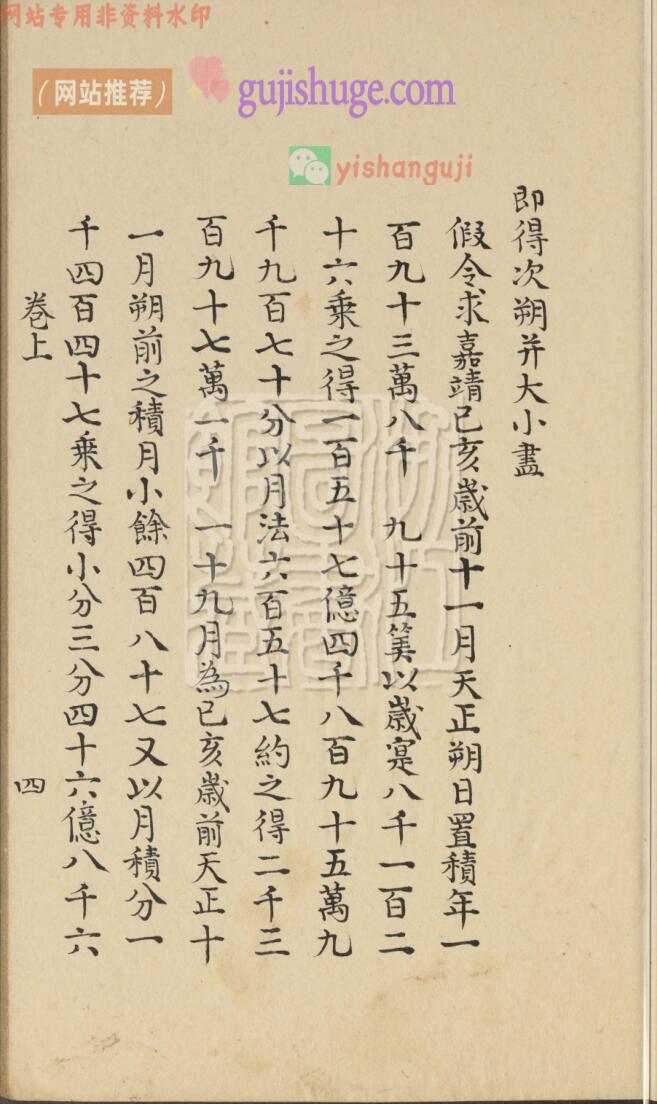 网站专用非资料水印
(网站推荐)
gujishuge.com
yishanguji
即得次朔并大小盡
假令求嘉靖己亥歲前十一月天正朔日置積年一
百九十三萬八千　九十五筭以歲寔八千一百二
十六乘之得一百五十七億四千八百九十五萬九
千九百七十分以月法六百五十七約之得二千三
百九十七萬一千　一十九月為己亥歲前天正十
一月朔前之積月小餘四百八十七又以月積分一
千四百四十七乘之得小分三分四十六億八千六
卷上
四